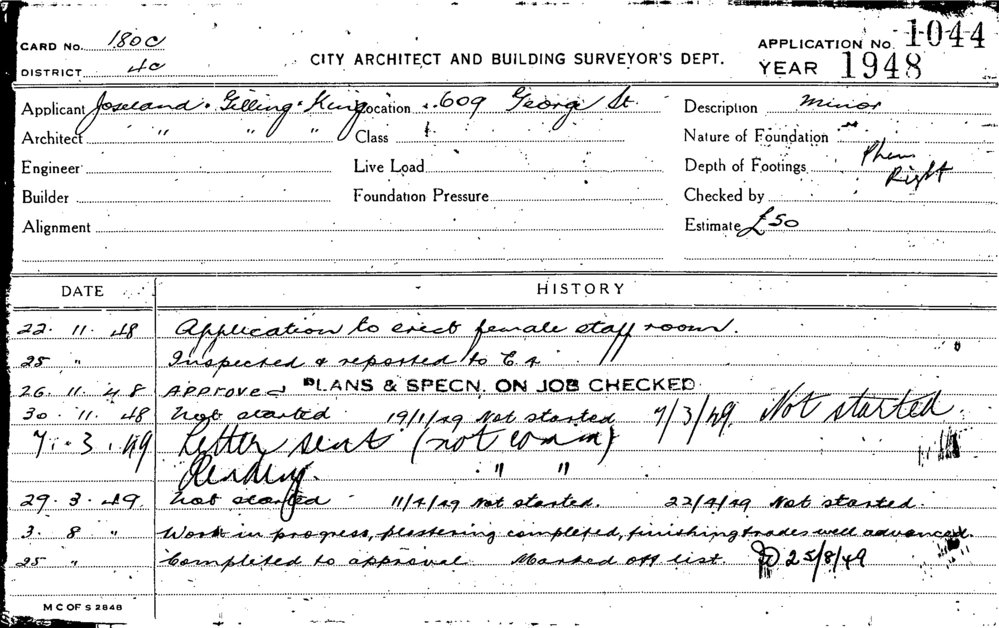 CARD No. 180C
DISTRICT 4C
CITY ARCHITECT AND BUILDING SURVEYOR'S DEPT.
APPLICATION No. 1044
YEAR 1948
Applicant Joseland. Gilling. King Location 609 George St. Description Minor
Architect " " " Class Nature of Foundation
Engineer Live Load Depth of Footings
Right
Builder Foundation Pressure Checked by
Alignment Estimate £50
DATE HISTORY
22. 11. 48 Application to erect female staff room.
25 " Inspected & reported to C A
26. 11. 48 APPROVED PLANS & SPECN. ON JOB CHECKED
30. 11. 48 Not started 19/1/49 Not started 7/3/49. Not started.
7. 3. 49 Letter sent (not comm)
Pending. " "
29. 3. 49. Not started 11/4/49 Not started. 22/4/49 Not started.
3. 8 " Work in progress, plastering completed, finishing trades well advanced.
25 " Completed to approval. Marked off list. 25/8/49
M C OF S 2848